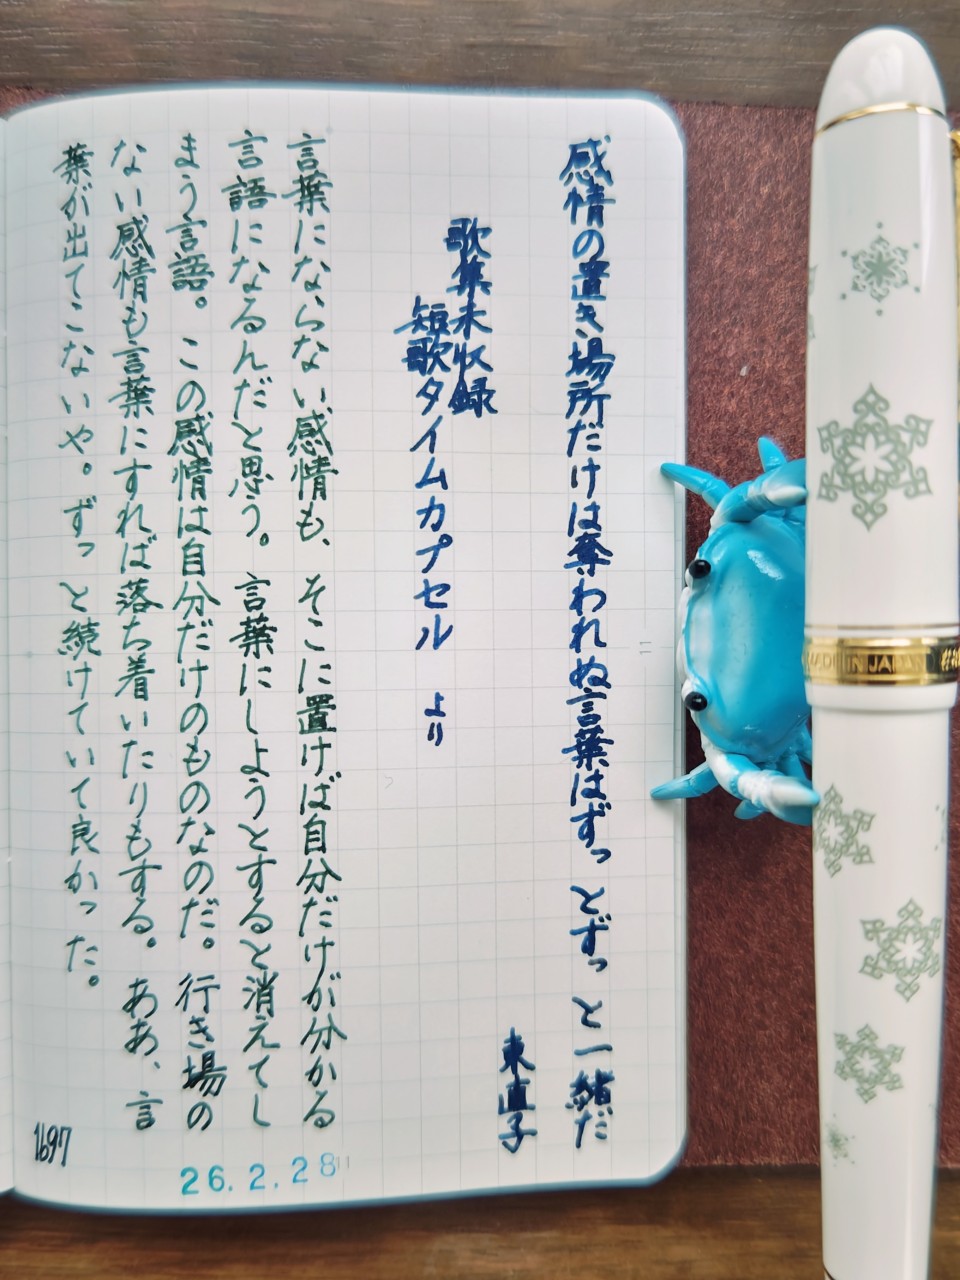 感情の置き場所だけは奪われぬ言葉はずっとずっと一緒だ
東直子
歌集未収録
短歌タイムカプセル より
言葉にならない感情も、そこに置けば自分だけが分かる
言語になるんだと思う。言葉にしようとすると消えてし
まう言語。この感情は自分だけのものなのだ。行き場の
ない感情も言葉にすれば落ち着いたりもする。ああ、言
葉が出てこないや。ずっと続けていて良かった。
1697
26.2.28
11
11
MADE IN JAPAN